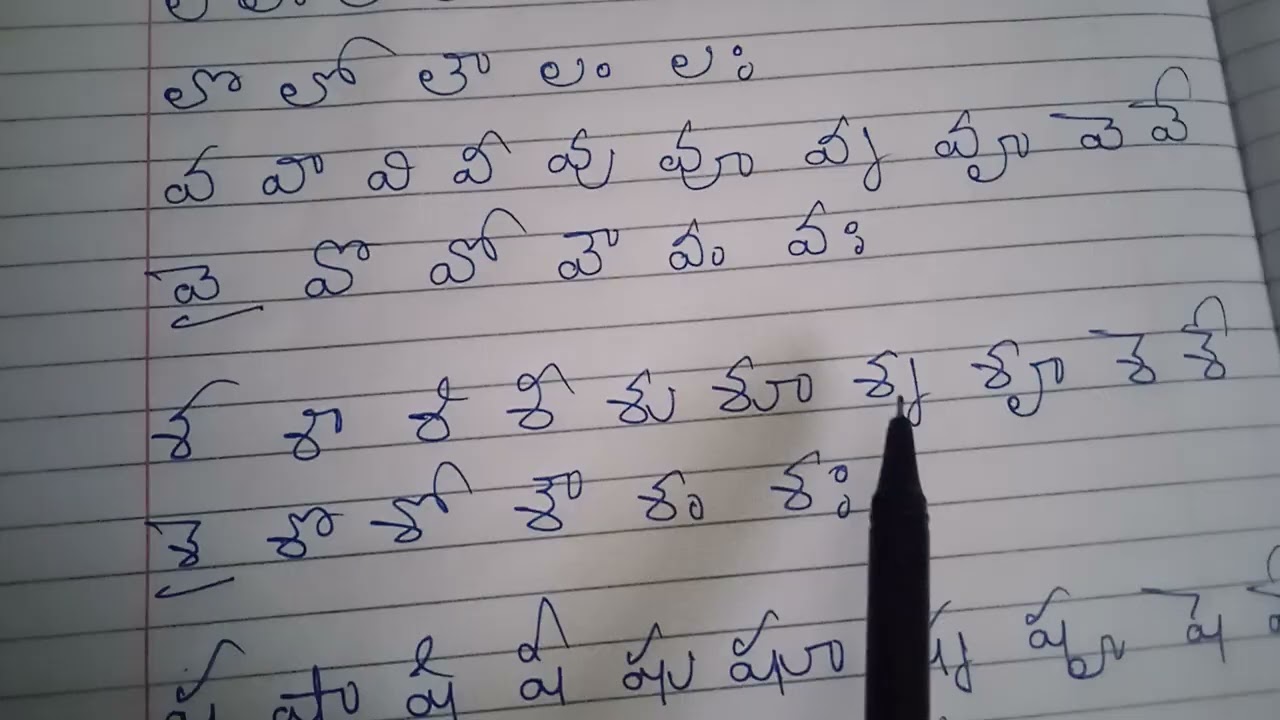 లొ లో లౌ లం లః
వ వా వి వీ వు వూ వృ వౄ వె వే
వై వొ వో వౌ వం వః
శ శా శి శీ శు శూ శృ శౄ శె శే
శై శొ శో శౌ శం శః
ష షా షి షీ షు షూ షృ షౄ షె